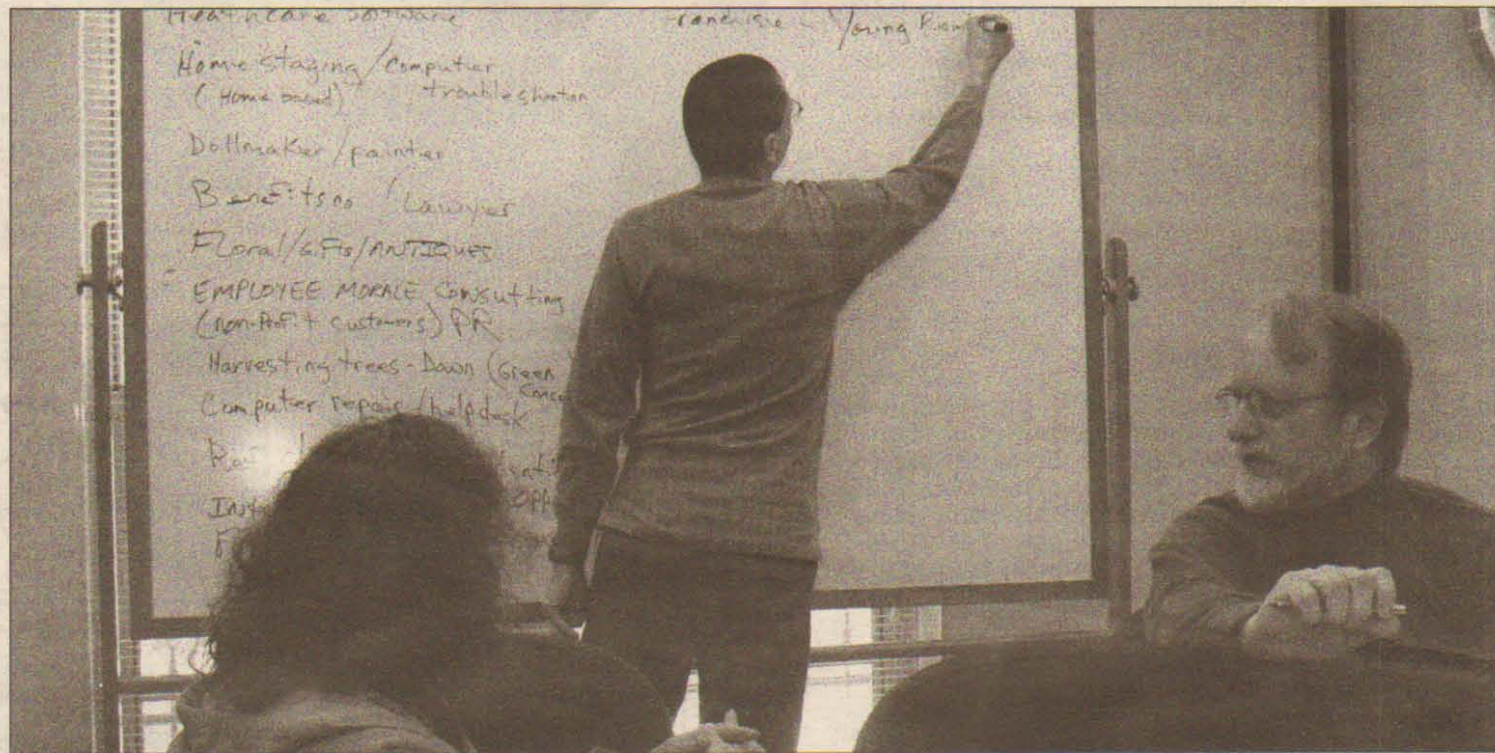 Healthcare software
Franchise - Young
Home Staging/Computer
(Home based) troubleshooton
Dollmaker/painter
Benefits no / Lawyer
Floral/Gifts/ANTIQUES
EMPLOYEE MORALE Consutting
(non-Profit customers) PR
Harvesting trees - Down (Green
Computer repair/helpdesk